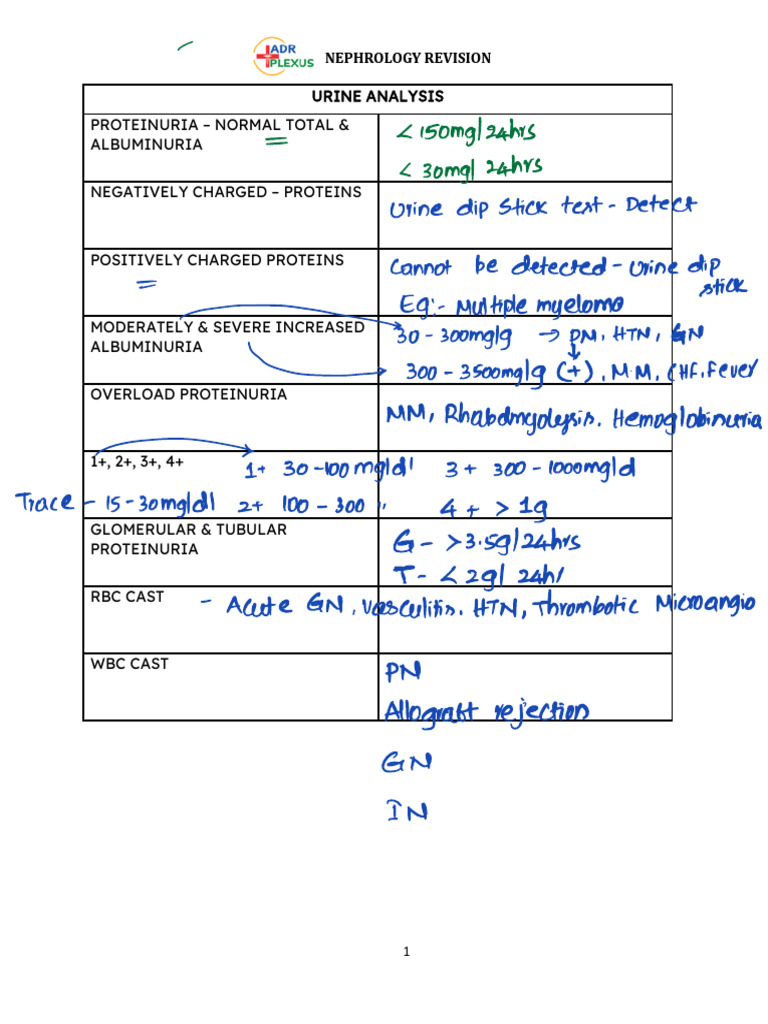 ADR
PLEXUS
NEPHROLOGY REVISION
URINE ANALYSIS
PROTEINURIA – NORMAL TOTAL &
ALBUMINURIA
< 150mg/24hrs
< 30mg/ 24hrs
NEGATIVELY CHARGED – PROTEINS
Urine dip stick test - Detect
POSITIVELY CHARGED PROTEINS
Cannot be detected - Urine dip
stick
Eg:- Multiple myeloma
MODERATELY & SEVERE INCREASED
ALBUMINURIA
30 - 300mg/g → DM, HTN, GN
300 - 3500mg/g (+), M.M, CHF, Fever
OVERLOAD PROTEINURIA
MM, Rhabdmyolysis. Hemoglobinuria
1+, 2+, 3+, 4+
1+ 30-100 mg/dl 3+ 300-1000mg/d
Trace - 15-30mg/dl 2+ 100 - 300 " 4+ > 1g
GLOMERULAR & TUBULAR
PROTEINURIA
G - >3.5g/24hrs
T - <2g/ 24h/
RBC CAST
- Acute GN, Vasculitis. HTN, Thrombotic Microangio
WBC CAST
PN
Allograft rejection
GN
IN
1